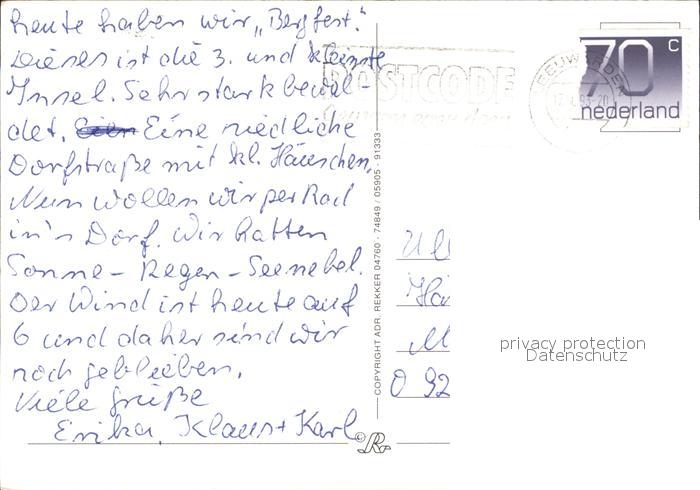 heute haben wir „Bergfest."
Dieses ist die 3. und kleinste
Insel. Sehr stark bewal-
det. Eine niedliche
Dorfstraße mit kl. Häuschen.
Nun wollen wir per Rad
in's Dorf. Wir hatten
Sonne - Regen - Seenebel.
Der Wind ist heute auf
6 und daher sind wir
noch geblieben.
Viele Grüße
Erika, Klaus + Karl
COPYRIGHT ADR. REKKER 04760 - 74849 / 05905 - 91333
R
POSTCODE
LEEUWARDEN
70 c
nederland
Ul
Hä
M
O 92
privacy protection
Datenschutz